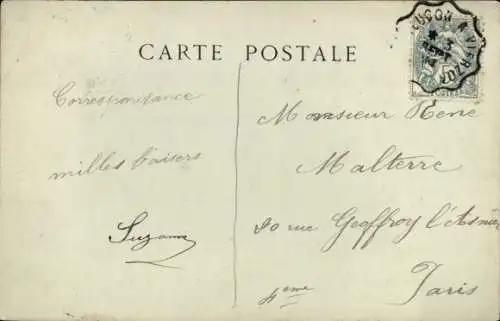 CARTE POSTALE
Correspondance
milles baisers
Suzanne
Monsieur Rene
Malterre
20 rue Geoffroy l'Asnier
4eme
Paris